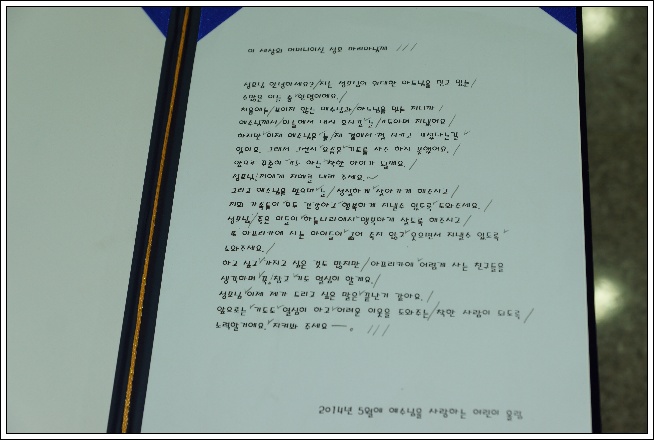 이 세상의 어머니이신 성모 마리아님께
성모님 안녕하세요? 저는 성모님의 위대한 아드님을 믿고 있는
수많은 이들 중 한명이에요.
처음에는 보이지 않는 예수님과 하느님을 믿는 저니까
예수님께서 이 곁에서 내려
하지만 이제 예수님은 늘 제 곁에서
있어요. 그래서 그런지 요즘은 기도를 자주 하지 못했어요.
앞으로 꾸준히 기도 하는 착한 아이가 될께요.
성모님 저에게 지혜를 내려 주세요.
그리고 예수님을 믿으며 성실하게 살아가게 해주시고
저희 가족들이 모두 건강하고 행복하게 지낼수 있도록 도와주세요.
성모님 죽은 이들이 하늘나라에서 행복하게 살도록 해주시고
또 아프리카에 사는 아이들이 굶어 죽지 않고 웃으면서 지낼수 있도록
도와주세요.
하고 싶고 가지고 싶은 것도 많지만 아프리카에 어렵게 사는 친구들을
생각하며 꾹 참고 기도 열심히 할게요.
성모님 이제 제가 드리고 싶은 말은 끝난거 같아요.
앞으로는 기도도 열심히 하고 어려운 이웃을 도와주는 착한 사람이 되도록
노력할거에요. 지켜봐 주세요
2014년 5월에 예수님을 사랑하는 어린이 올림